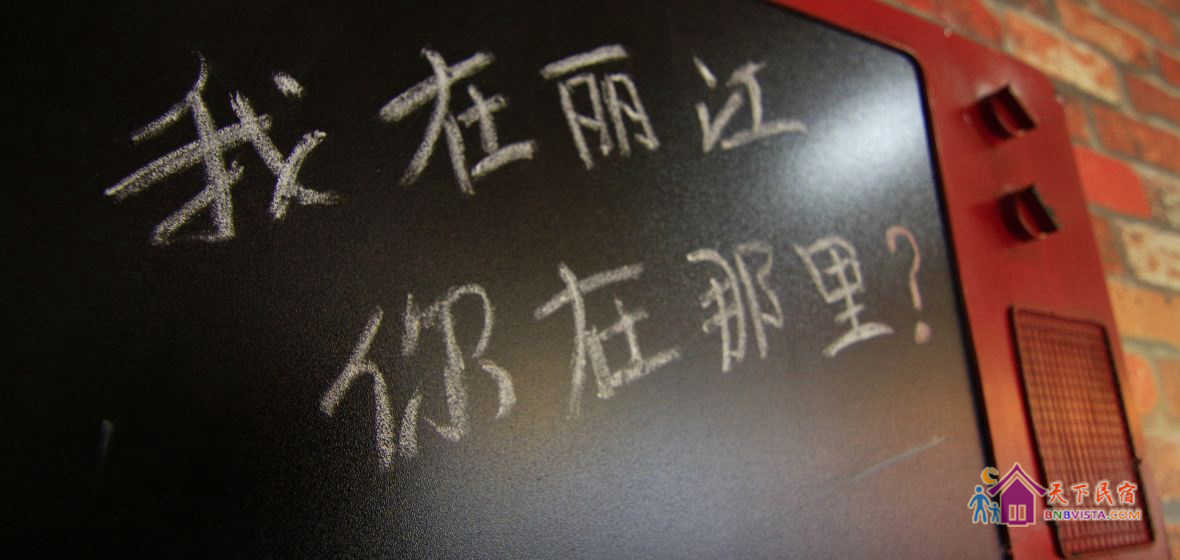 我在丽江
你在那里?
天下民宿
BNBVISTA.COM